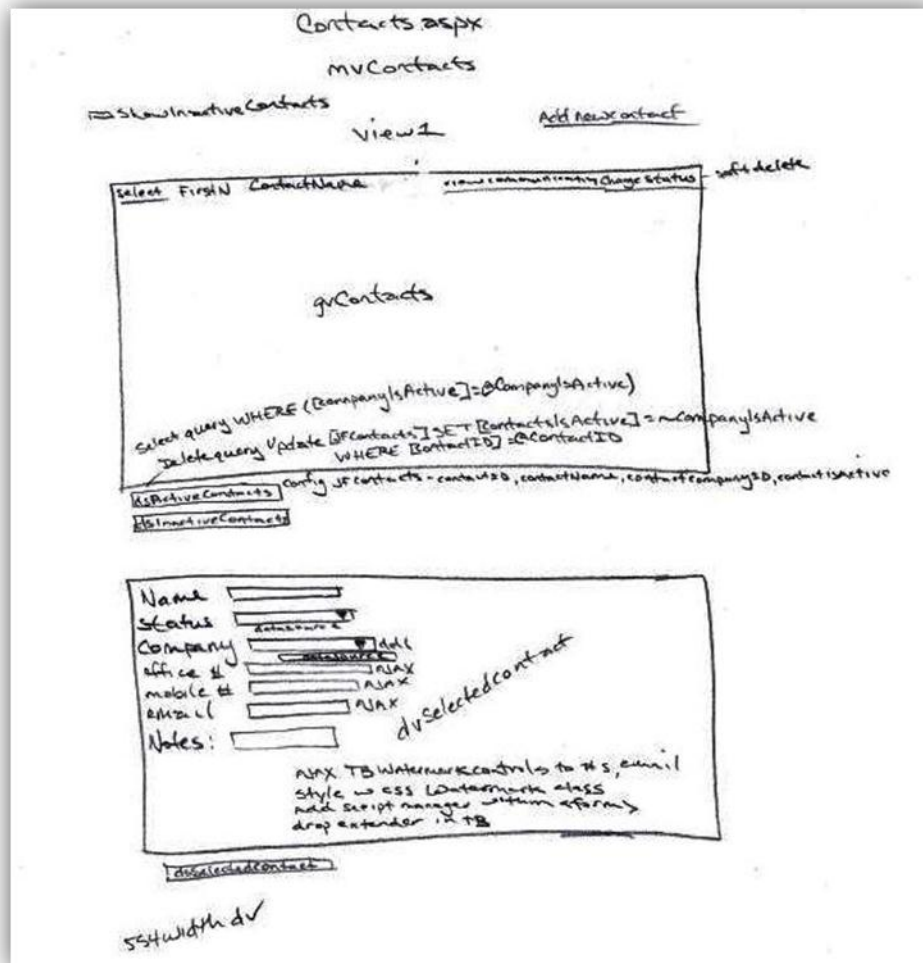 Contacts.aspx
mvContacts
ShowInactiveContacts
Add new contact
view1
select FirstN ContactName view communication Change status - soft delete
gvContacts
Select query WHERE ([CompanyIsActive]=@CompanyIsActive)
Delete query Update [JFContacts] SET [ContactsIsActive]=~CompanyIsActive
WHERE [ContactID]=@ContactID
dsActiveContacts config JFContacts - contactID, contactName, contactcompanyID, contactisactive
dsInactiveContacts
Name
Status
datasource
Company ddl
datasource
office # AJAX
mobile # AJAX
email AJAX
Notes:
dvSelectedContact
AJAX TB Watermark controls to #s, email
style w css watermark class
add script manager within <form>
drop extender in TB
dsSelectedContact
554 width dv